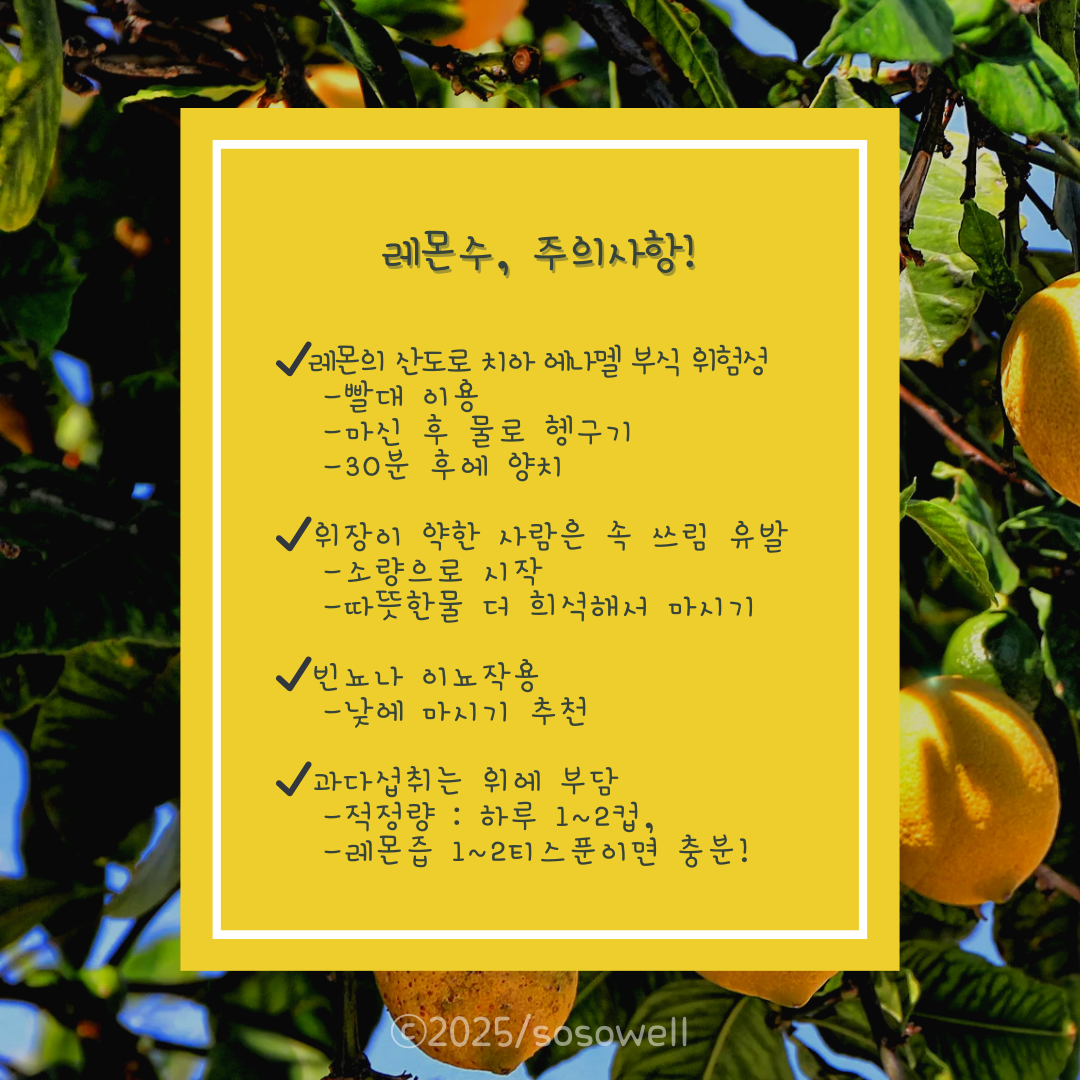 레몬수, 주의사항!
✓레몬의 산도로 치아 에나멜 부식 위험성
-빨대 이용
-마신 후 물로 헹구기
-30분 후에 양치
✓위장이 약한 사람은 속 쓰림 유발
-소량으로 시작
-따뜻한물 더 희석해서 마시기
✓빈뇨나 이뇨작용
-낮에 마시기 추천
✓과다섭취는 위에 부담
-적정량 : 하루 1~2컵,
-레몬즙 1~2티스푼이면 충분!
©2025/sosowell